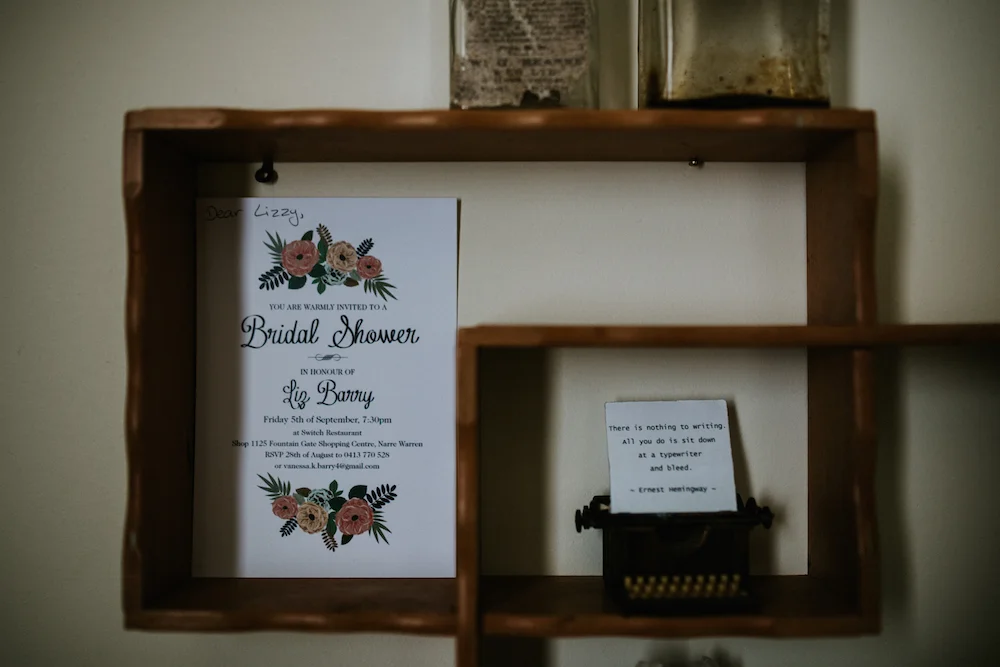 Dear Lizzy,
YOU ARE WARMLY INVITED TO A
Bridal Shower
IN HONOUR OF
Liz Barry
Friday 5th of September, 7:30pm
at Switch Restaurant
Shop 1125 Fountain Gate Shopping Centre, Narre Warren
RSVP 28th of August to 0413 770 528
or vanessa.k.barry4@gmail.com
There is nothing to writing.
All you do is sit down
at a typewriter
and bleed.
~ Ernest Hemingway ~